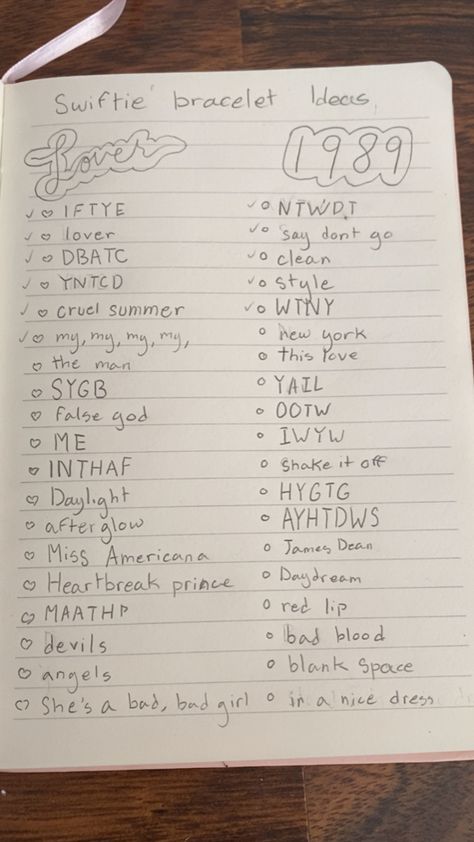 Swiftie bracelet Ideas
Lover
IFTYE
lover
DBATC
YNTCD
cruel summer
my, my, my, my,
the man
SYGB
False god
ME
INTHAF
Daylight
afterglow
Miss Americana
Heartbreak prince
MAATHP
devils
angels
She's a bad, bad girl
1989
NTWDT
say dont go
clean
style
WTNY
new york
this love
YAIL
OOTW
IWYW
Shake it off
HYGTG
AYHTDWS
James Dean
Daydream
red lip
bad blood
blank space
in a nice dress